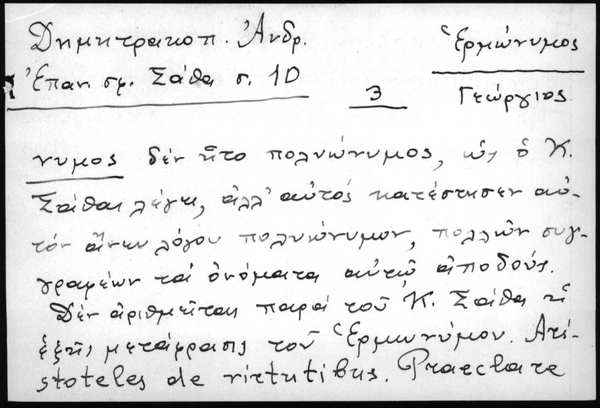 Δημητρακοπ. Ἀνδρ.
Ἐπαν σφ. Σάθα σ. 10
3
Ἑρμώνυμος
Γεώργιος
νυμος δέν ἦτο πολυώνυμος, ὡς ὁ Κ.
Σάθας λέγει, ἀλλ' αὐτός κατέστησεν αὐ-
τόν ἄνευ λόγου πολυώνυμον, πολλῶν συγ-
γραφέων τά ὀνόματα αὐτῷ ἀποδούς.
Δέν ἀριθμεῖται παρά τοῦ Κ. Σάθα ἡ
ἑξῆς μετάφρασις τοῦ Ἑρμωνύμου. Ari-
stoteles de virtutibus. Praeclare